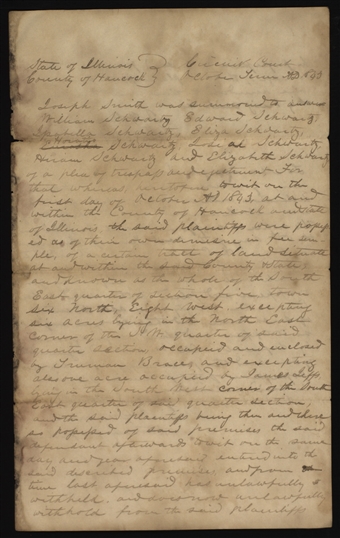 State of Illinois } Circuit Court
County of Hancock } October Term AD 1843
Joseph Smith was summoned to answer
William Schwartz Edward Schwartz
Isabella Schwartz, Eliza Schwartz,
Schwartz, Schwartz
Hiram Schwartz and Elizabeth Schwartz
of a plea of trespass and ejectment For
that whereas heretofore to wit on the
first day of October AD 1843 at and
within the County of Hancock and State
of Illinois, the said plaintiffs were possess
ed as of their own demesne in fee sim-
ple, of a certain tract of land situate
at and within the said County & State
and known as the whole of the South
East quarter of section five town
six North, Eight West, excepting
six acres lying in the North East
corner of the N.W. quarter of said
quarter section occupied and enclosed
by Truman and excepting
also one acre occupied by James
lying in the South West corner of the South
East quarter of said quarter section,
and the said plaintiffs being then and there
so possessed of said premises the said
defendant afterwards to wit on the same
day and year aforesaid entered into the
said described premises and from the
time last aforesaid has unlawfully
withheld and does now unlawfully
withhold from the said plaintiffs